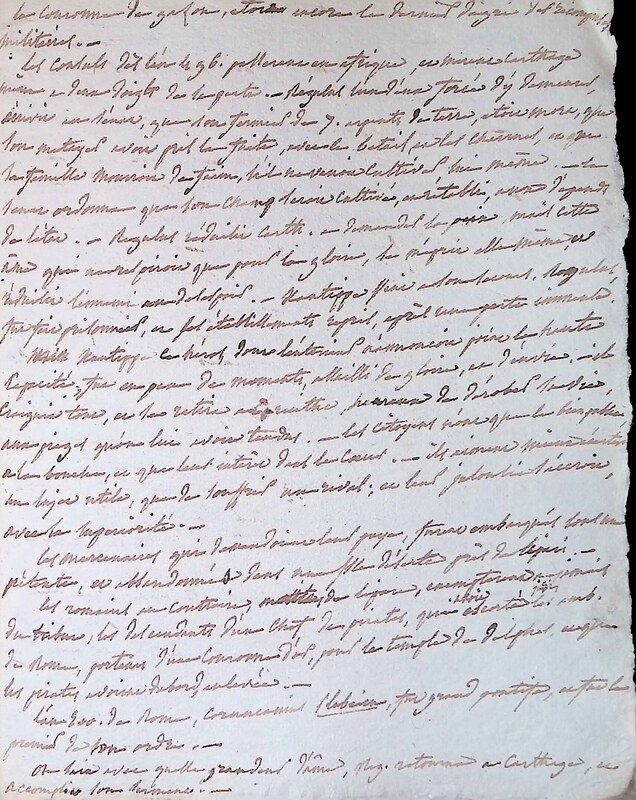 la Couronne de gazon, etoit encore le dernier degré des récompenses
militaires. —
Les Consuls de l'an 496. passerent en afrique, et mirent Carthage
même a deux doigts de sa perte. — Régulus l'un d'eux forcé d'y demeurer,
écrivit au Sénat, que son fermier de 7. arpents de terre, etoit mort, que
son métayer avoit pris la fuite, avec le betail et les Charrues, et que
sa famille mouroit de faim, s'il ne venoit Cultiver lui même. — le
Senat ordonna que son Champ seroit Cultivé, et rétabli, aux dépends
de l'état. — Regulus réduisit Carth. a demander la paix, mais cette
âme qui ne respiroit que pour la gloire, la méprisa elle même et
réduisit l'ennemi au desespoir. — Xantippe vint a son secours. Regulus
fut fait prisonnier, et ses établissements repris, après une perte immense.
Xantippe ce héros, dont l'extérieur n'annonçoit point la haute
Capacité, fut en peu de moments, assailli de gloire, et d'envie. — il
Craignit tout, et se retira a Corinthe, heureux de dérober sa vie,
aux pieges qu'on lui avoit tendus. — Les Citoyens n'ont que le bien public
a la bouche, et que leur intérêt dans le Coeur. — ils aiment mieux
un sujet utile, que de souffrir un rival; et leur jalousie s'accroit,
avec la superiorité. —
Les mercenaires qui demandoient leur paye, furent embarqués sous un
prétexte, et abandonnés dans une isle déserte près de
Les romains au Contraire, de lipare, exempterent a jamais
du tribut, les descendants d'un Chef de pirates, qui avoit escorté les amb.
de Rome, porteurs d'une Couronne d'or, pour le temple de delphes, et que
les pirates avoient d'abord enlevée. —
L'an 500. de Rome, Coruncanius Plebeien, fut grand pontife, et fut le
premier de son ordre. —
On sait avec quelle grandeur d'âme, Reg. retourna a Carthage, et
accomplit son serment. —